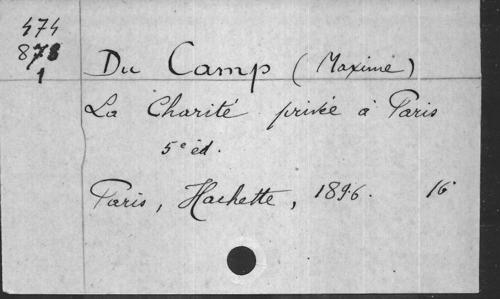 474
878
1
Du Camp (Maxime)
La Charité privée à Paris
5e éd.
Paris, Hachette, 1896. 16